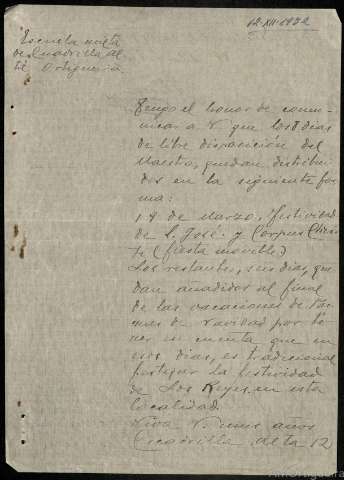 12-XII-1932
Escuela mixta
de Cuadrilla al
té Ortigueira
Tengo el honor de comu-
nicar a V. que los 8 dias
de libre disposición del
Maestro, quedan distribui-
dos en la siguiente for
ma:
19 de Marzo, festividad
de S. José y Corpus Chris-
ti (fiesta movible)
Los restantes, seis dias, que
dan añadidos al final
de las vacaciones de
de navidad por te
ner en cuenta que en
esos dias, es tradicional
festejar la festividad
de Los Reyes, en esta
localidad.
Viva V. muchos años
alta 12